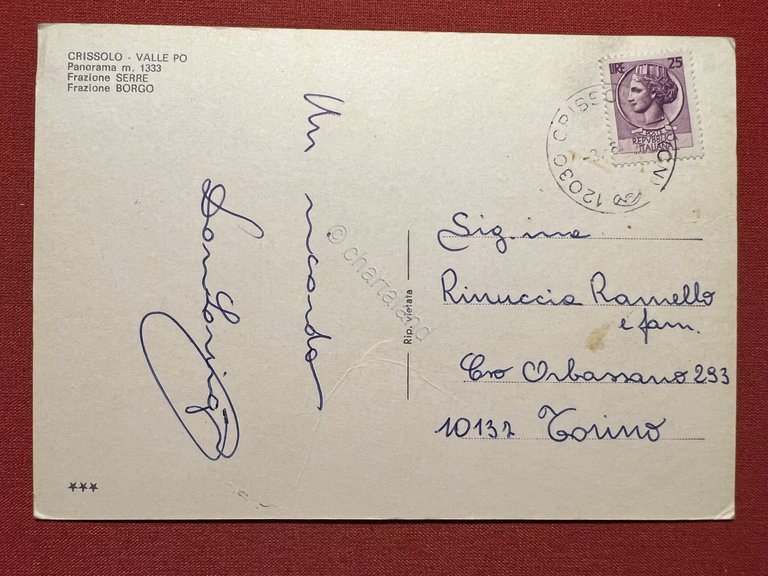 CRISSOLO - VALLE PO
Panorama m. 1333
Frazione SERRE
Frazione BORGO
Un ricordo
Don Luigi
Rip. vietata
© chartaland
LIRE 25
POSTE
REPVBBLICA
ITALIANA
12030 CRISSOLO (CN)
Sig.ina
Rinuccia Ramello
e fam.
Cso Orbassano 293
10132 Torino